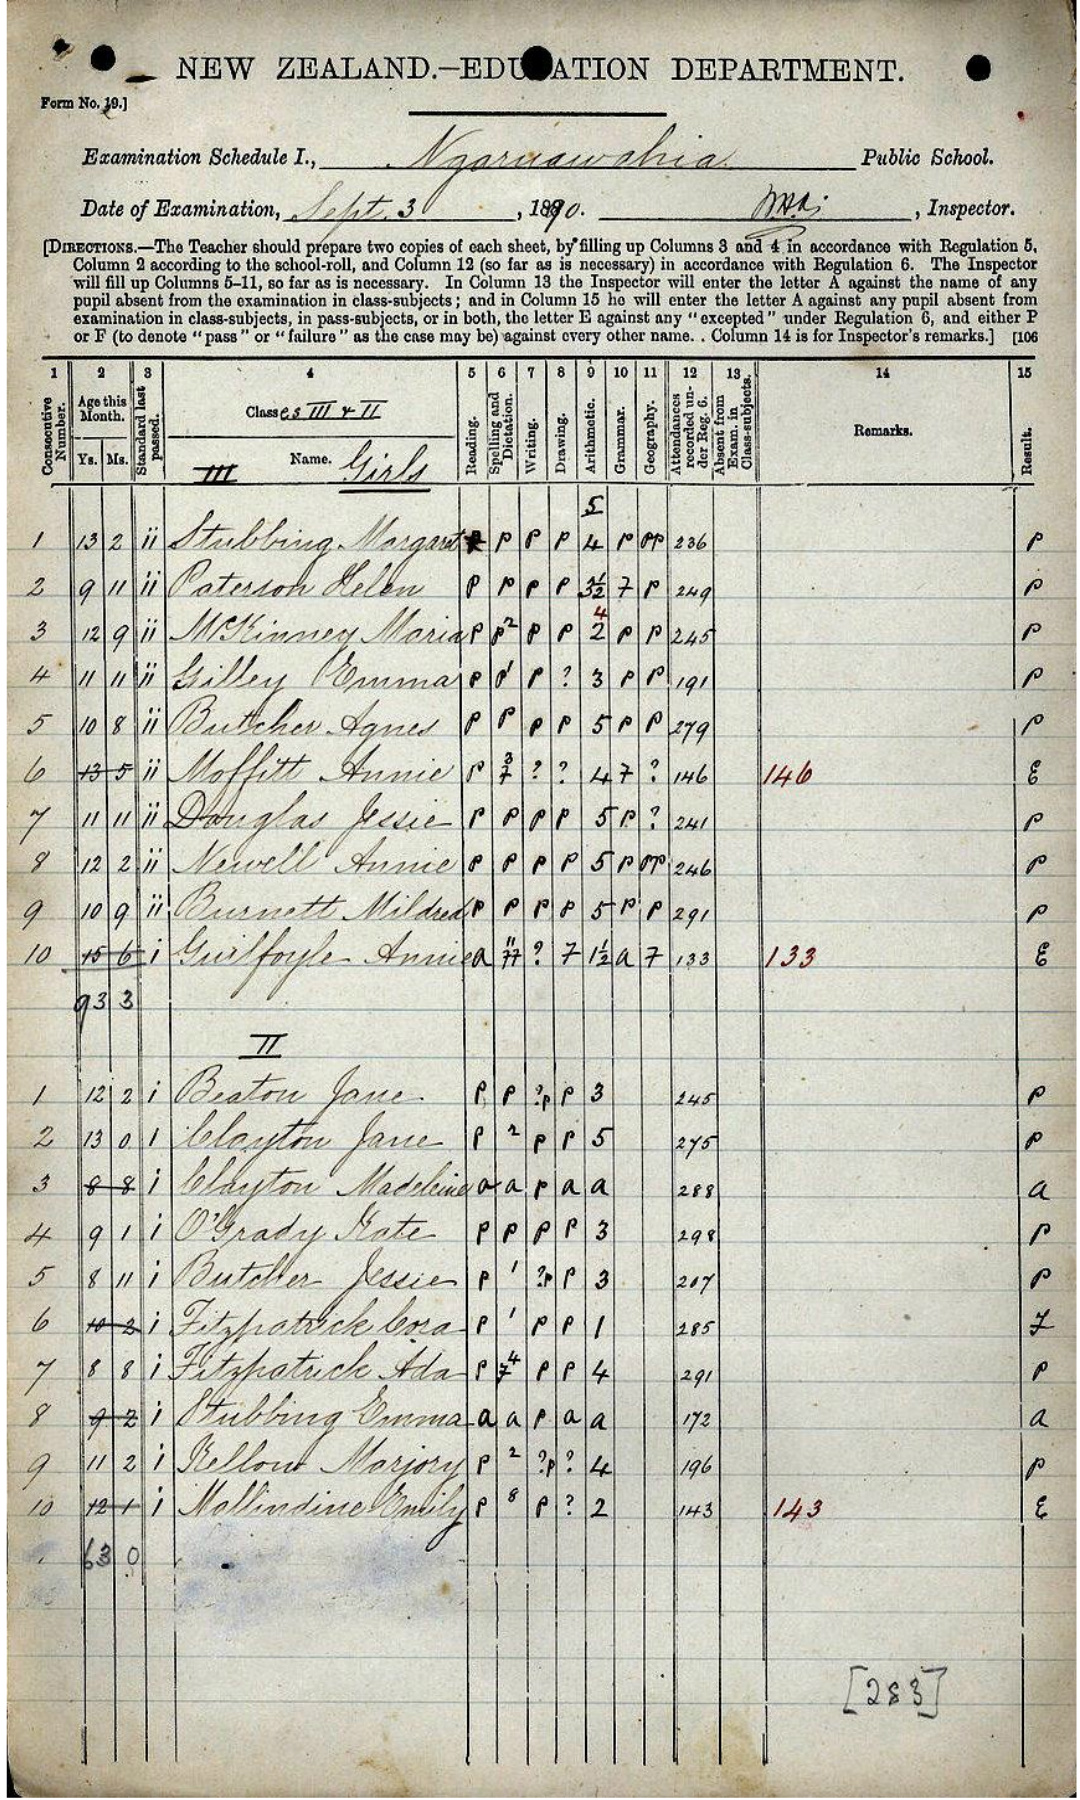 NEW ZEALAND.—EDUCATION DEPARTMENT.
Form No. 19.]
Examination Schedule I., Ngaruawahia Public School.
Date of Examination, Sept. 3, 1890. , Inspector.
[DIRECTIONS.—The Teacher should prepare two copies of each sheet, by filling up Columns 3 and 4 in accordance with Regulation 5,
Column 2 according to the school-roll, and Column 12 (so far as is necessary) in accordance with Regulation 6. The Inspector
will fill up Columns 5–11, so far as is necessary. In Column 13 the Inspector will enter the letter A against the name of any
pupil absent from the examination in class-subjects; and in Column 15 he will enter the letter A against any pupil absent from
examination in class-subjects, in pass-subjects, or in both, the letter E against any "excepted" under Regulation 6, and either P
or F (to denote "pass" or "failure" as the case may be) against every other name. . Column 14 is for Inspector's remarks.] [106
1 2 3 4 5 6 7 8 9 10 11 12 13 14 15
Consecutive Number. Age this Month. Ys. Ms. Standard last passed. Classes III & II Name. Girls Reading. Spelling and Dictation. Writing. Drawing. Arithmetic. Grammar. Geography. Attendances recorded under Reg. 6. Absent from Exam. in Class-subjects. Remarks. Result.
III
5
1 13 2 ii Stubbing Margaret P P P P 4 P PP 236 P
2 9 11 ii Paterson Helen P P P P 3½ 7 P 249 P
3 12 9 ii McKinney Maria P P2 P P 4 2 P P 245 P
4 11 11 ii Gilley Emma P P1 P ? 3 P P 191 P
5 10 8 ii Butcher Agnes P P P P 5 P P 279 P
6 13 5 ii Moffitt Annie P 3 7 ? ? 4 7 ? 146 146 E
7 11 11 ii Douglas Jessie P P P P 5 P ? 241 P
8 12 2 ii Newell Annie P P P P 5 P PP 246 P
9 10 9 ii Burnett Mildred P P P P 5 P P 291 P
10 15 6 i Guilfoyle Annie a 11 77 ? 7 1½ a 7 133 133 E
93 3
II
1 12 2 i Beaton Jane P P ?P P 3 245 P
2 13 0 1 Clayton Jane P 2 P P 5 275 P
3 8 8 i Clayton Madeleine a a P a a 288 a
4 9 1 i O'Grady Kate P P P P 3 298 P
5 8 11 i Butcher Jessie P 1 ?P P 3 207 P
6 10 2 i Fitzpatrick Cora P 1 P P 1 285 F
7 8 8 i Fitzpatrick Ada P 4 7 P P 4 291 P
8 9 2 i Stubbing Emma a a P a a 172 a
9 11 2 i Kellow Marjory P 2 ?P ? 4 196 P
10 12 1 i Mollindine Emily P 8 P ? 2 143 143 E
63 0
[283]